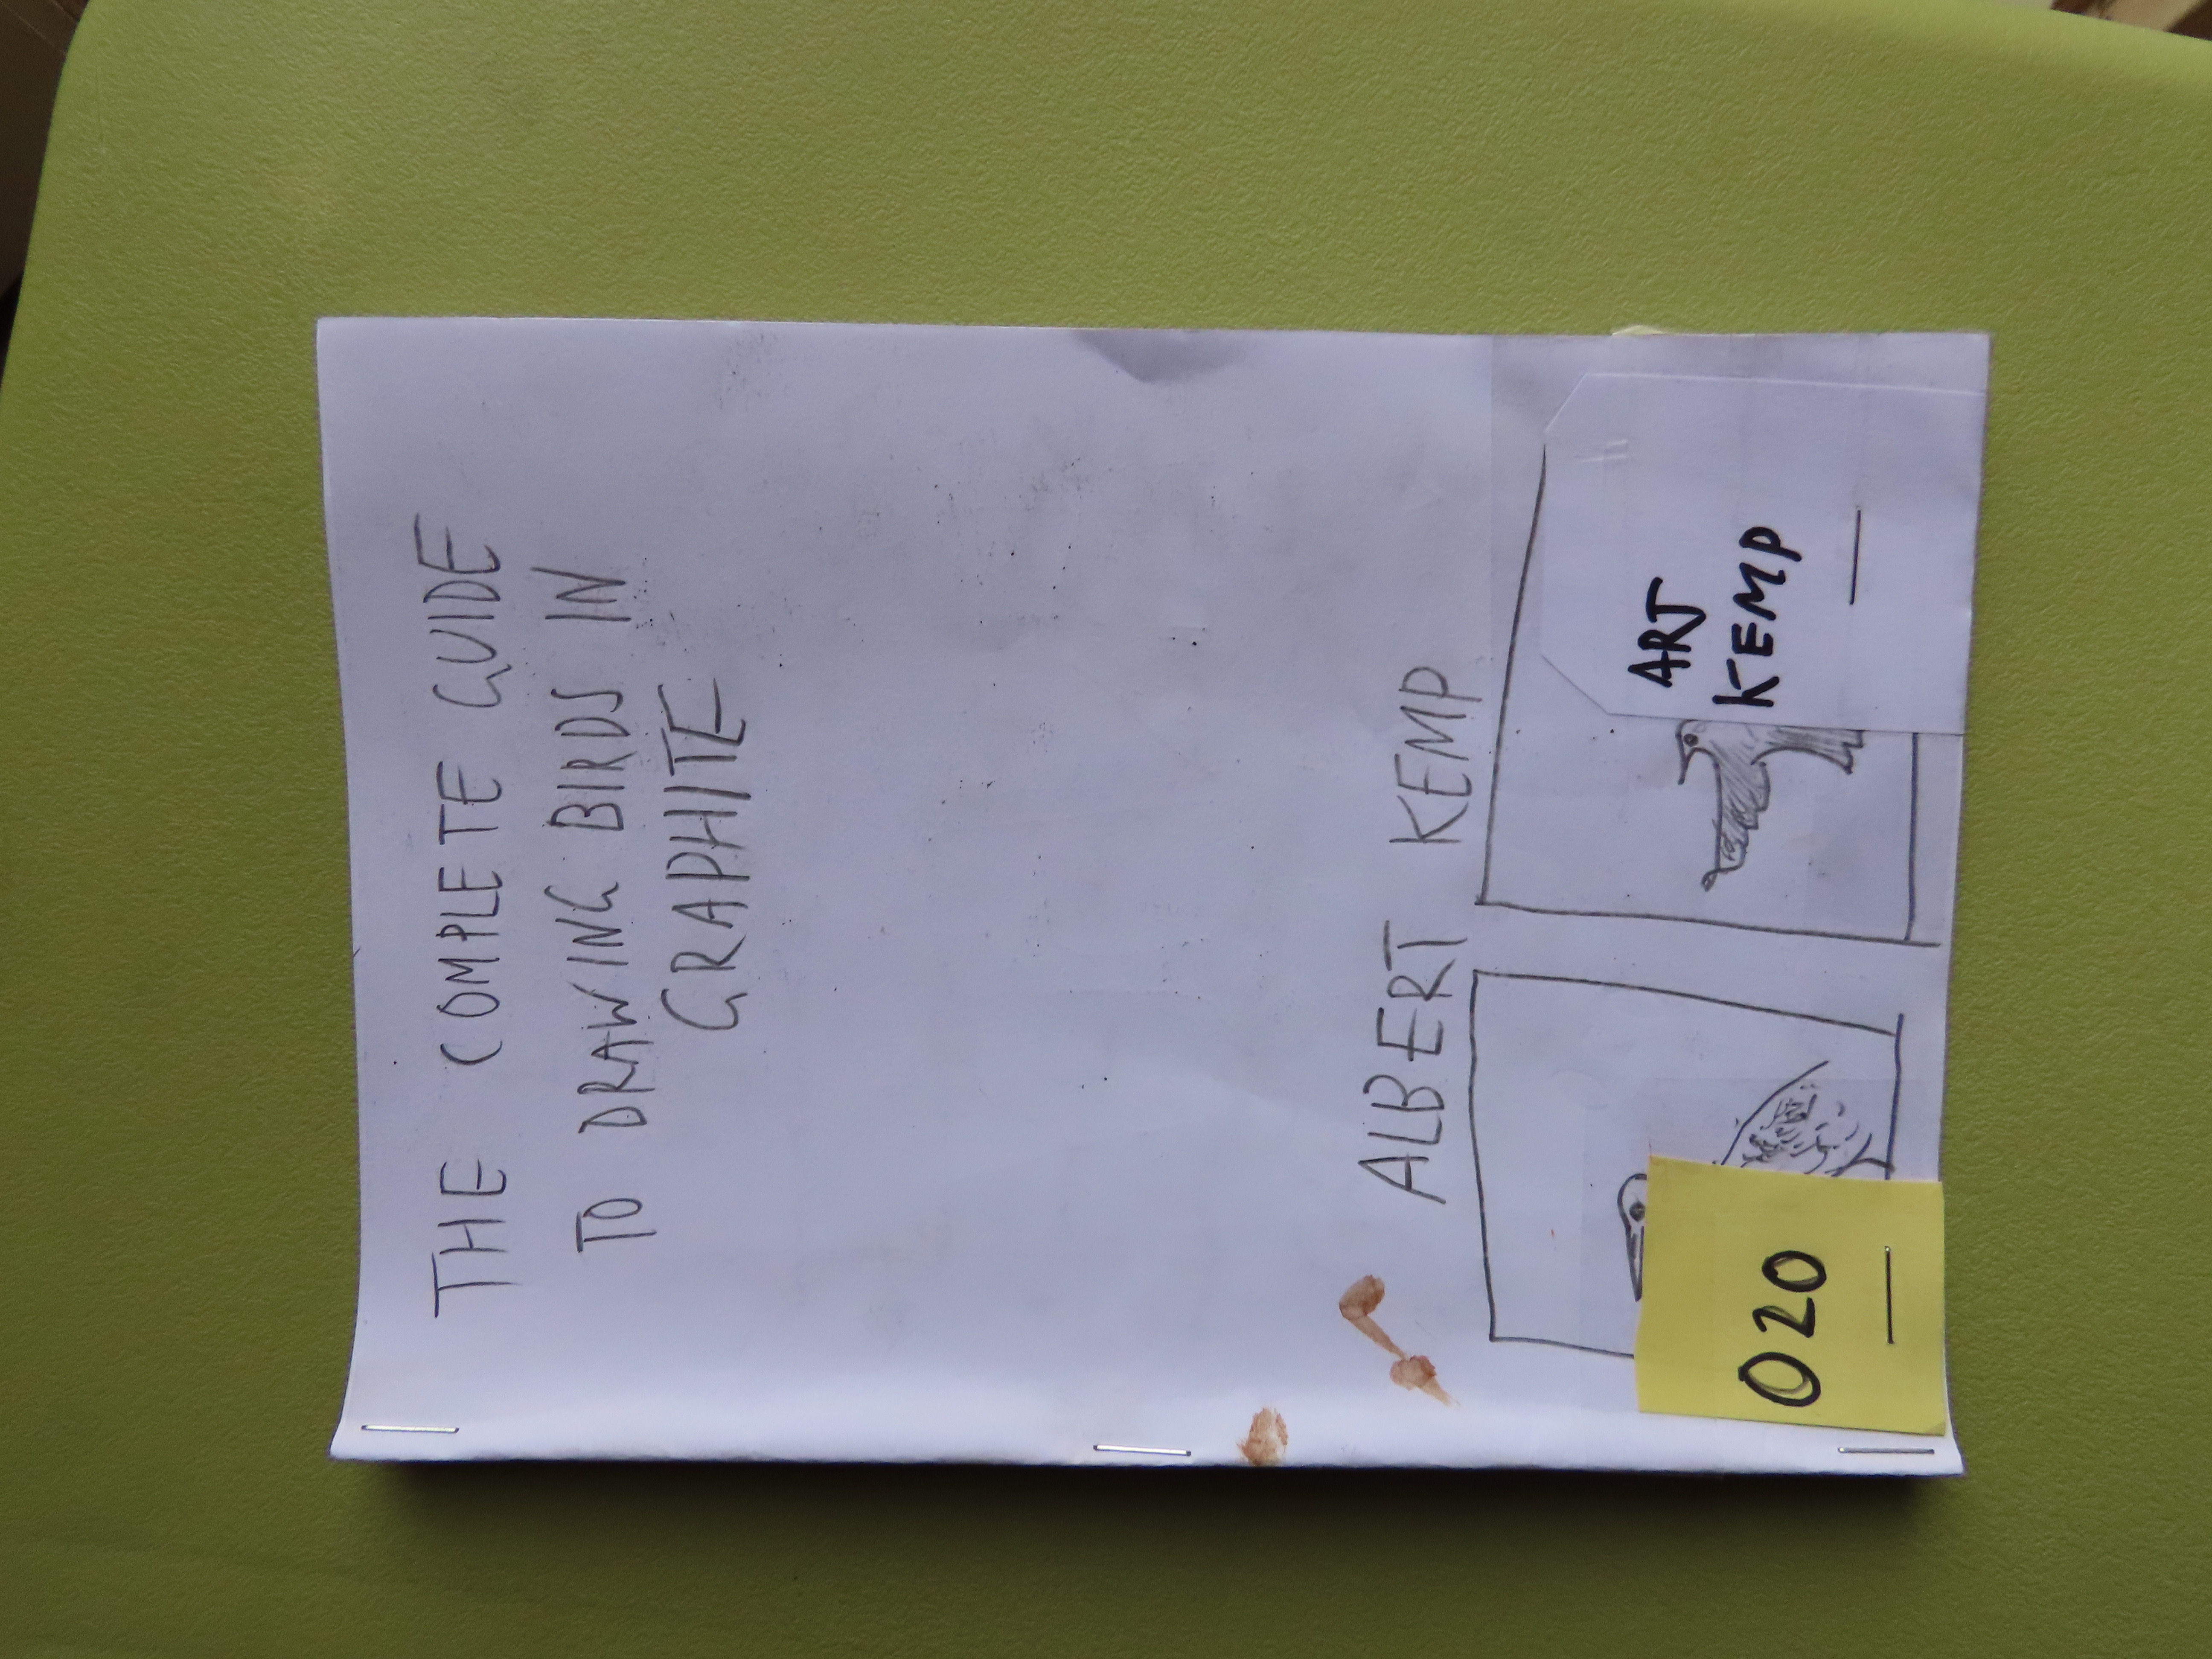 THE COMPLETE GUIDE
TO DRAWING BIRDS IN
GRAPHITE
ALBERT KEMP
020
ART
KEMP